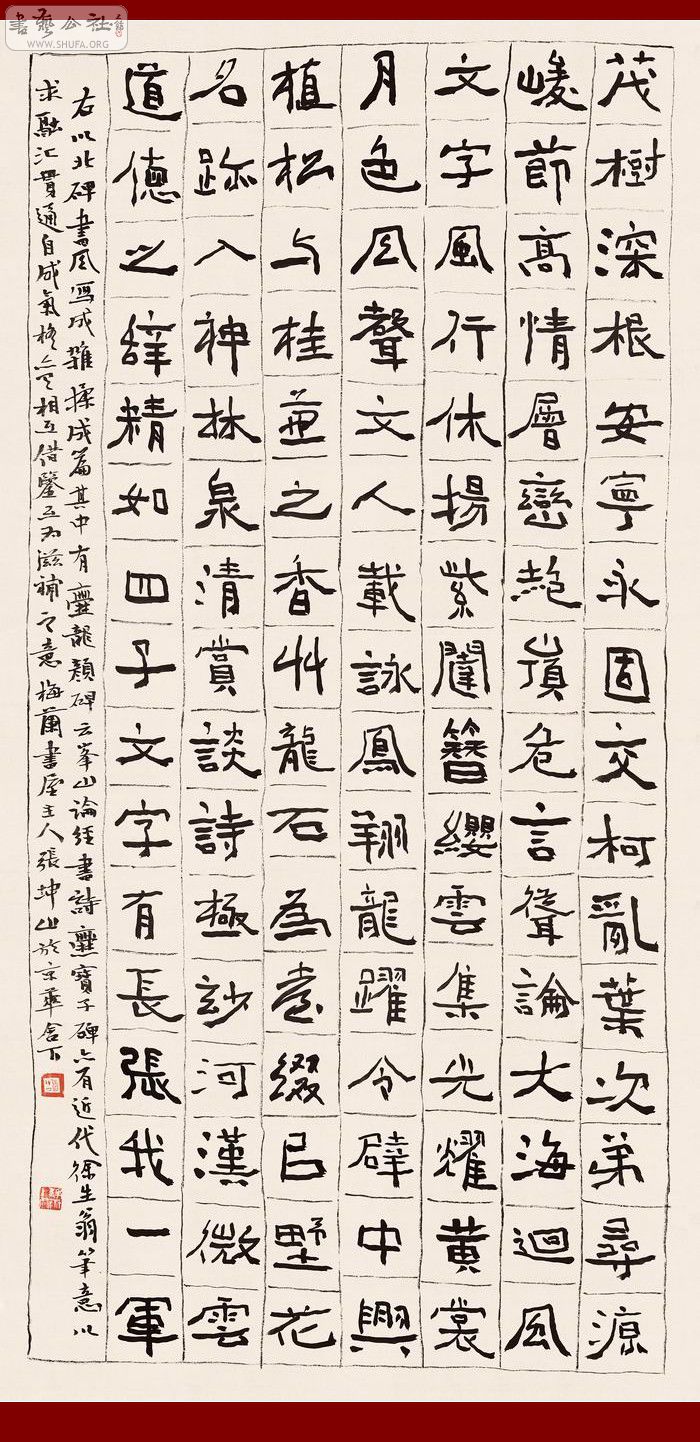 書藝公社
WWW.SHUFA.ORG
茂樹深根安寧永固交柯亂葉次弟尋源
峻節高情層巒絶頂危言聳論大海迴风
文字風行休揚紫闥簪纓雲集光耀黃裳
月色风聲文人載詠鳳翔龍躍令辟中興
植松与桂之香艸龍石為綴㠯野花
名跡入神林泉清賞談詩極妙河漢微雲
道德之辭精如四子文字有長張我一軍
右以北碑書风寫成雜揉成篇其中有爨龍顏碑云峯山論經書詩爨寶子碑亦有近代徐生翁筆意以
求融汇貫通自成氣格相互借鑒互为滋補之意梅蘭書屋主人張坤山於京華舍下